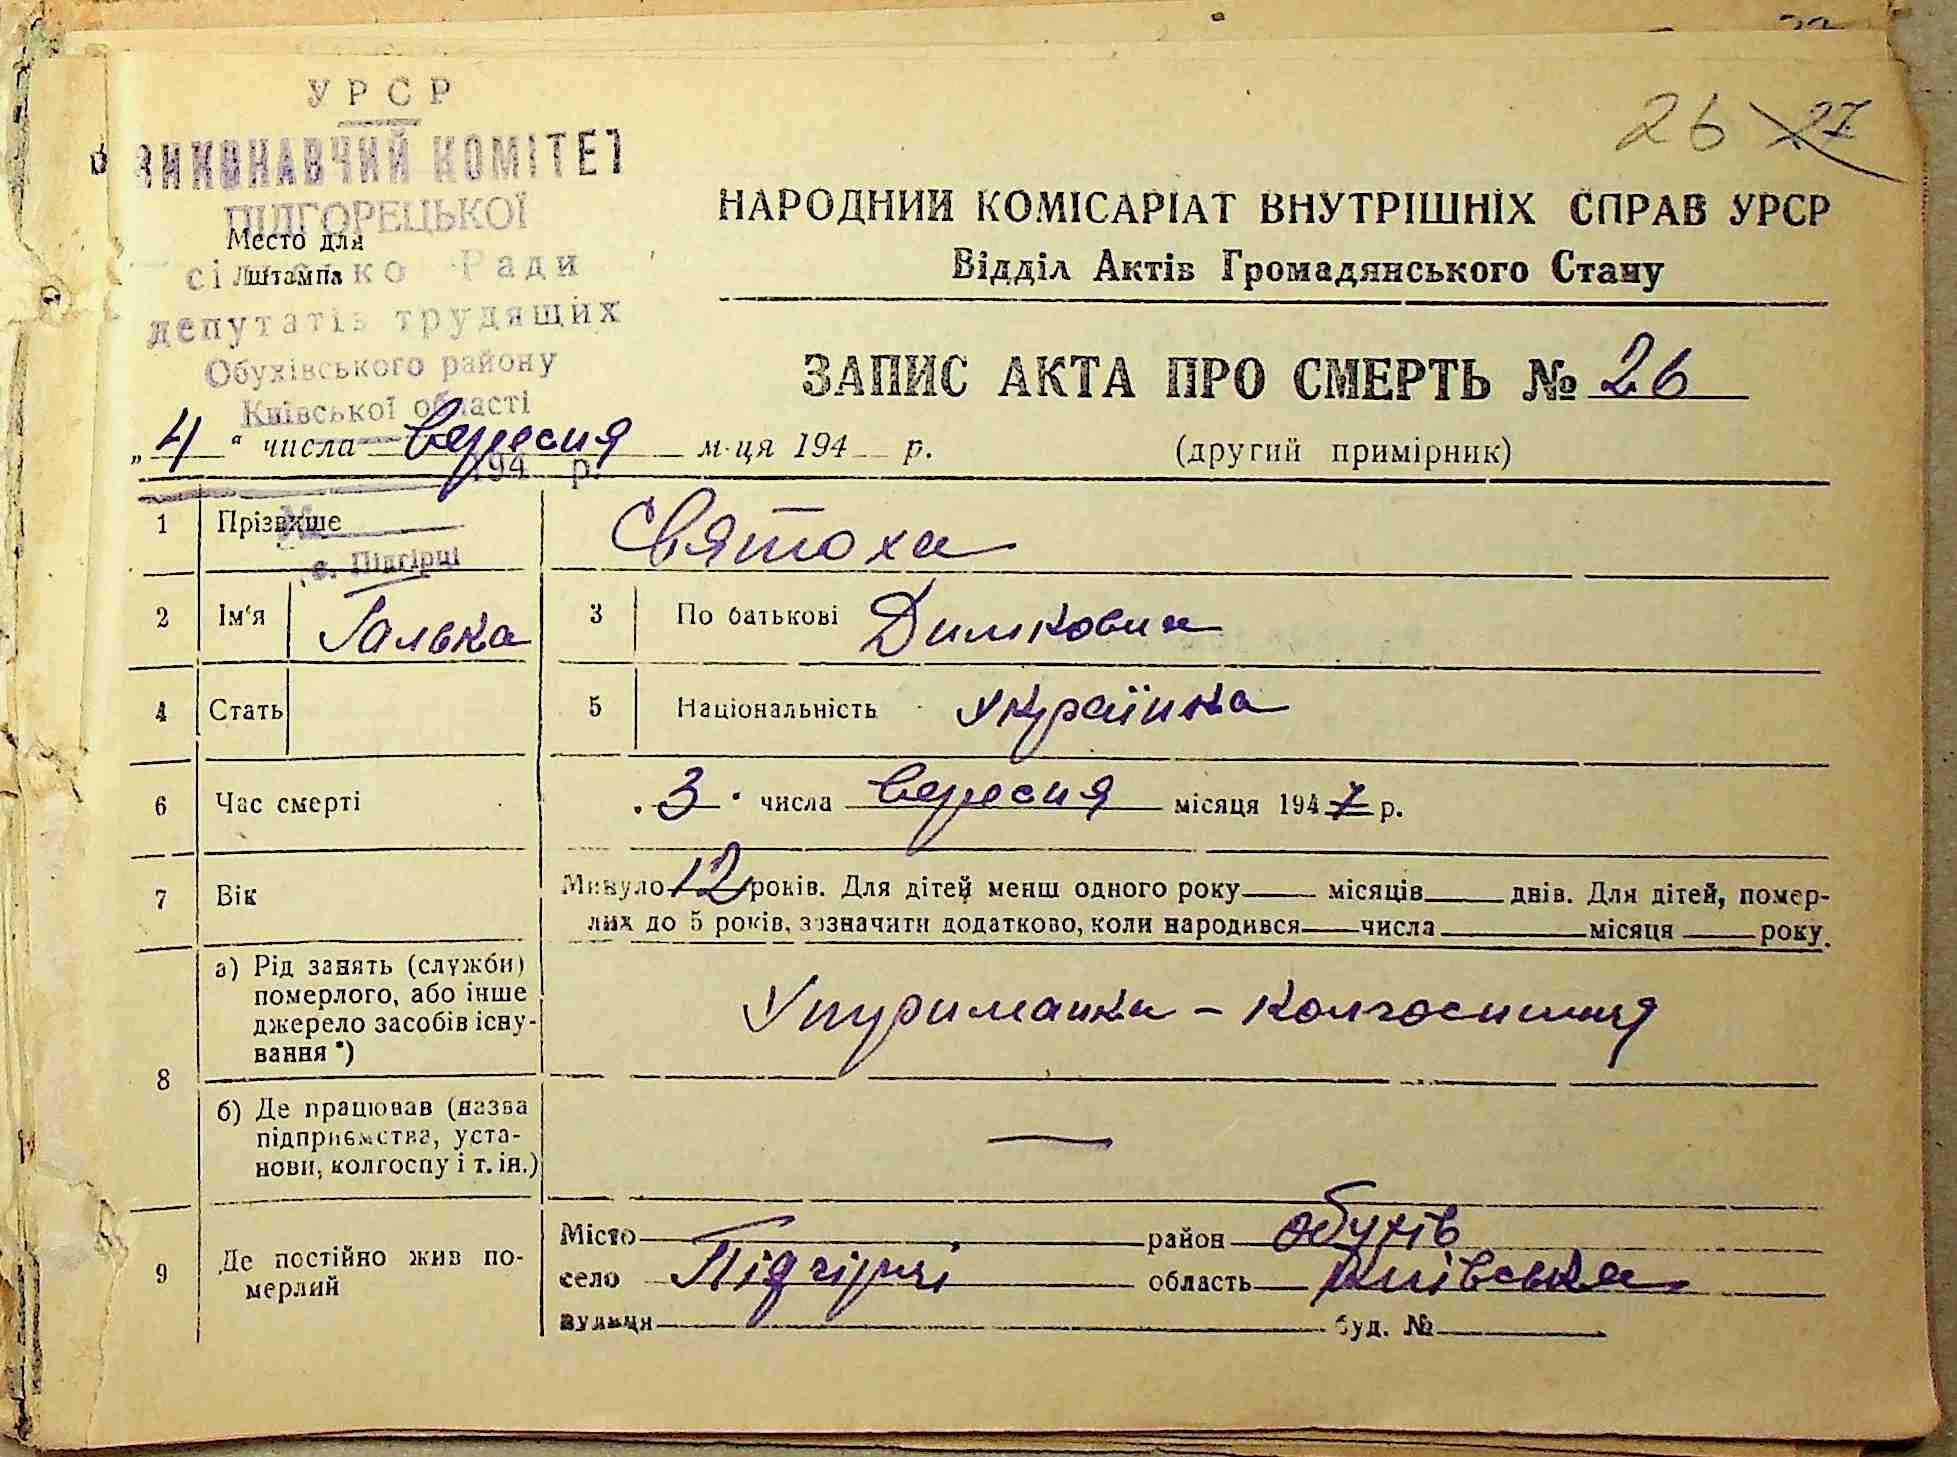 26 27
УРСР
ВИКОНАВЧИЙ КОМІТЕТ
ПІДГОРЕЦЬКОЇ
Место для
штампа
Ради
депутатів трудящих
Обухівського району
Київської області
194 р.
с. Підгірці
НАРОДНИЙ КОМІСАРІАТ ВНУТРІШНІХ СПРАВ УРСР
Відділ Актів Громадянського Стану
ЗАПИС АКТА ПРО СМЕРТЬ № 26
„4“ числа вересня м-ця 194 р. (другий примірник)
1 Прізвище Святоха
2 Ім'я Галька 3 По батькові
4 Стать 5 Національність Українка
6 Час смерті „3“ числа вересня місяця 1947 р.
7 Вік Минуло 12 років. Для дітей менш одного року місяців днів. Для дітей, помер-
лих до 5 років, зазначити додатково, коли народився числа місяця року.
8 а) Рід занять (служби)
померлого, або інше
джерело засобів існу-
вання *)
Утриманка -
б) Де працював (назва
підприємства, уста-
нови, колгоспу і т. ін.) —
9 Де постійно жив по-
мерлий
Місто район Обухів
село Підгірці область Київська
вулиця буд. №